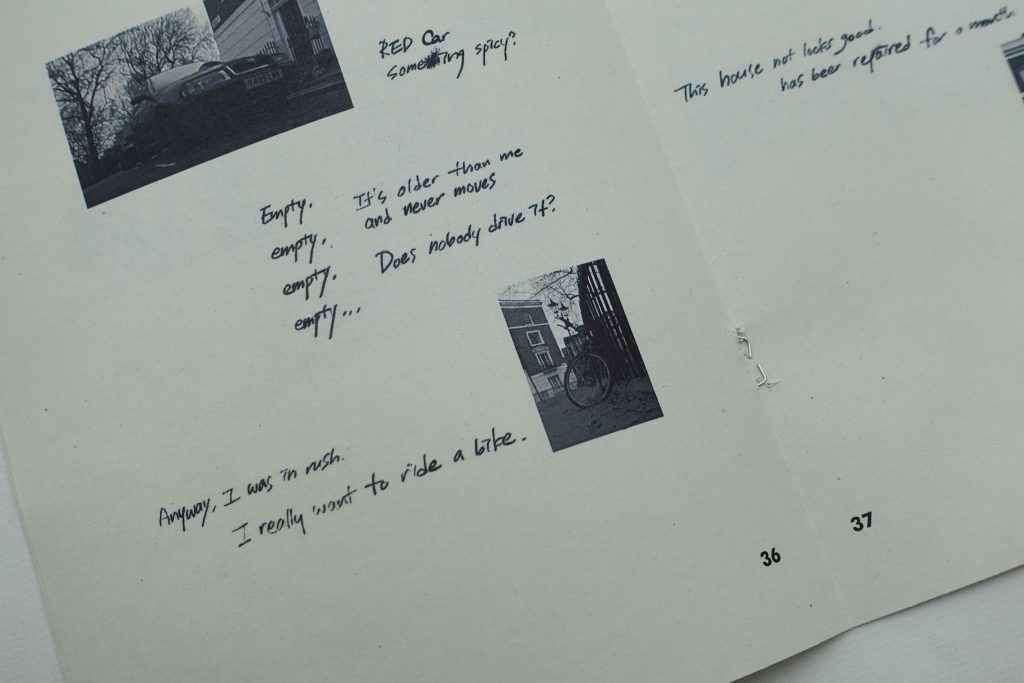 RED Car
Something spicy?
Empty. It's older than me
empty. and never moves
empty. Does nobody drive it?
empty...
Anyway, I was in rush.
I really want to ride a bike.
36
This house not looks good.
has been repaired for a month
37